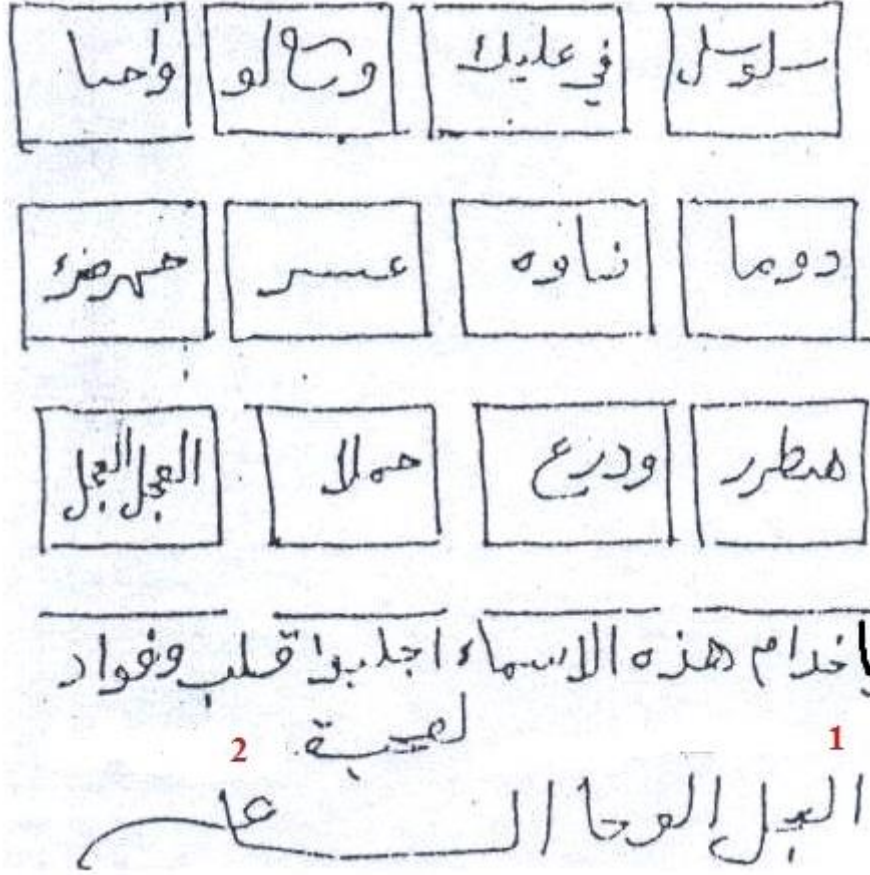 سلوسل في عليك و لو واحبا
دوما نناوه عسر
هطرر ودرع حملا العجل العجل
يا خدام هذه الاسماء اجلبوا قلب وفواد
1 2
العجل الوحا الساعه